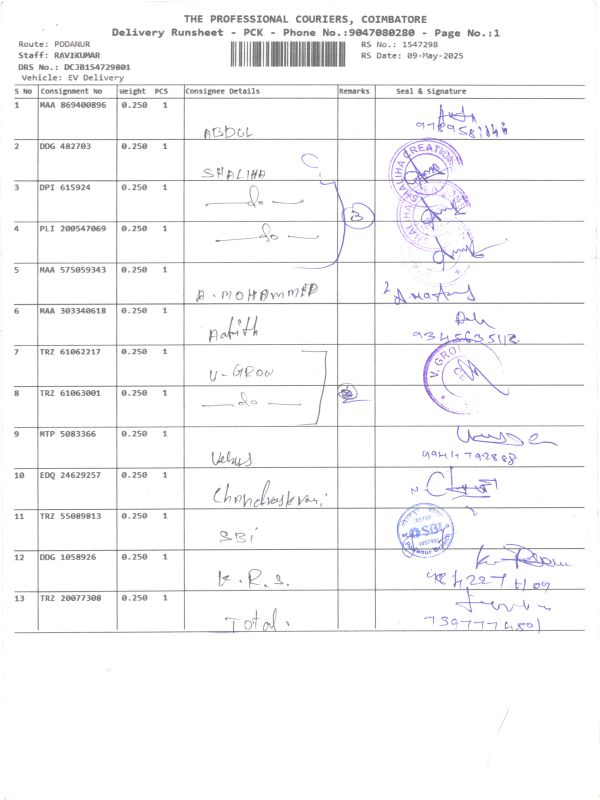 THE PROFESSIONAL COURIERS, COIMBATORE
Delivery Runsheet - PCK - Phone No.:9047080280 - Page No.:1
Route: PODANUR RS No.: 1547298
Staff: RAVIKUMAR RS Date: 09-May-2025
DRS No.: DCJB154729801
Vehicle: EV Delivery
S No Consignment No Weight PCS Consignee Details Remarks Seal & Signature
1 MAA 869400896 0.250 1 ABDUL
2 DDG 482703 0.250 1 SHALIHA SHALIHA CREATION
3 DPI 615924 0.250 1 do 3
4 PLI 200547069 0.250 1 do
5 MAA 575059343 0.250 1 A. MOHAMMED
6 MAA 303340618 0.250 1
7 TRZ 61062217 0.250 1 V-GROW V. GRO
8 TRZ 61063001 0.250 1 do 2
9 MTP 5083366 0.250 1 9944792888
10 EDQ 24629257 0.250 1
11 TRZ 55089813 0.250 1 SBI SBI
12 DDG 1058926 0.250 1 K.R.S.
13 TRZ 20077308 0.250 1 Total.